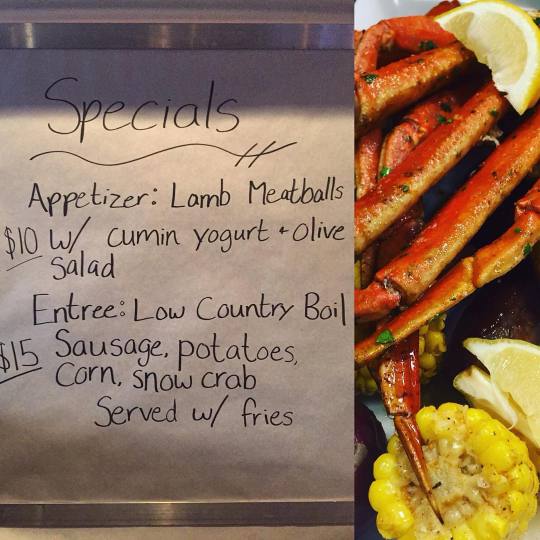 Specials
Appetizer: Lamb Meatballs
$10 w/ cumin yogurt + olive
salad
Entree: Low Country Boil
$15 Sausage, potatoes,
Corn, snow crab
Served w/ fries